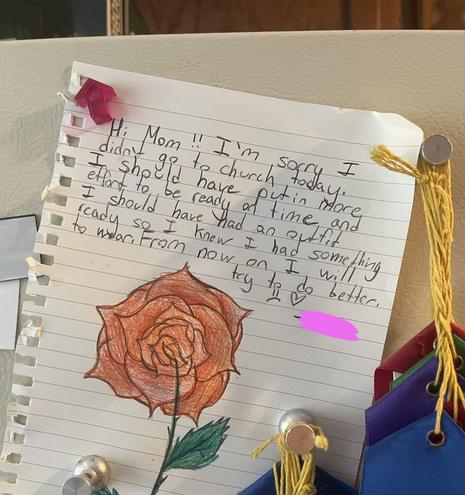 Hi Mom!! I'm sorry I
didn't go to church today.
I should have put in more
effort to be ready on time and
I should have had an outfit
ready so I knew I had something
to wear. From now on I will
try to do better.